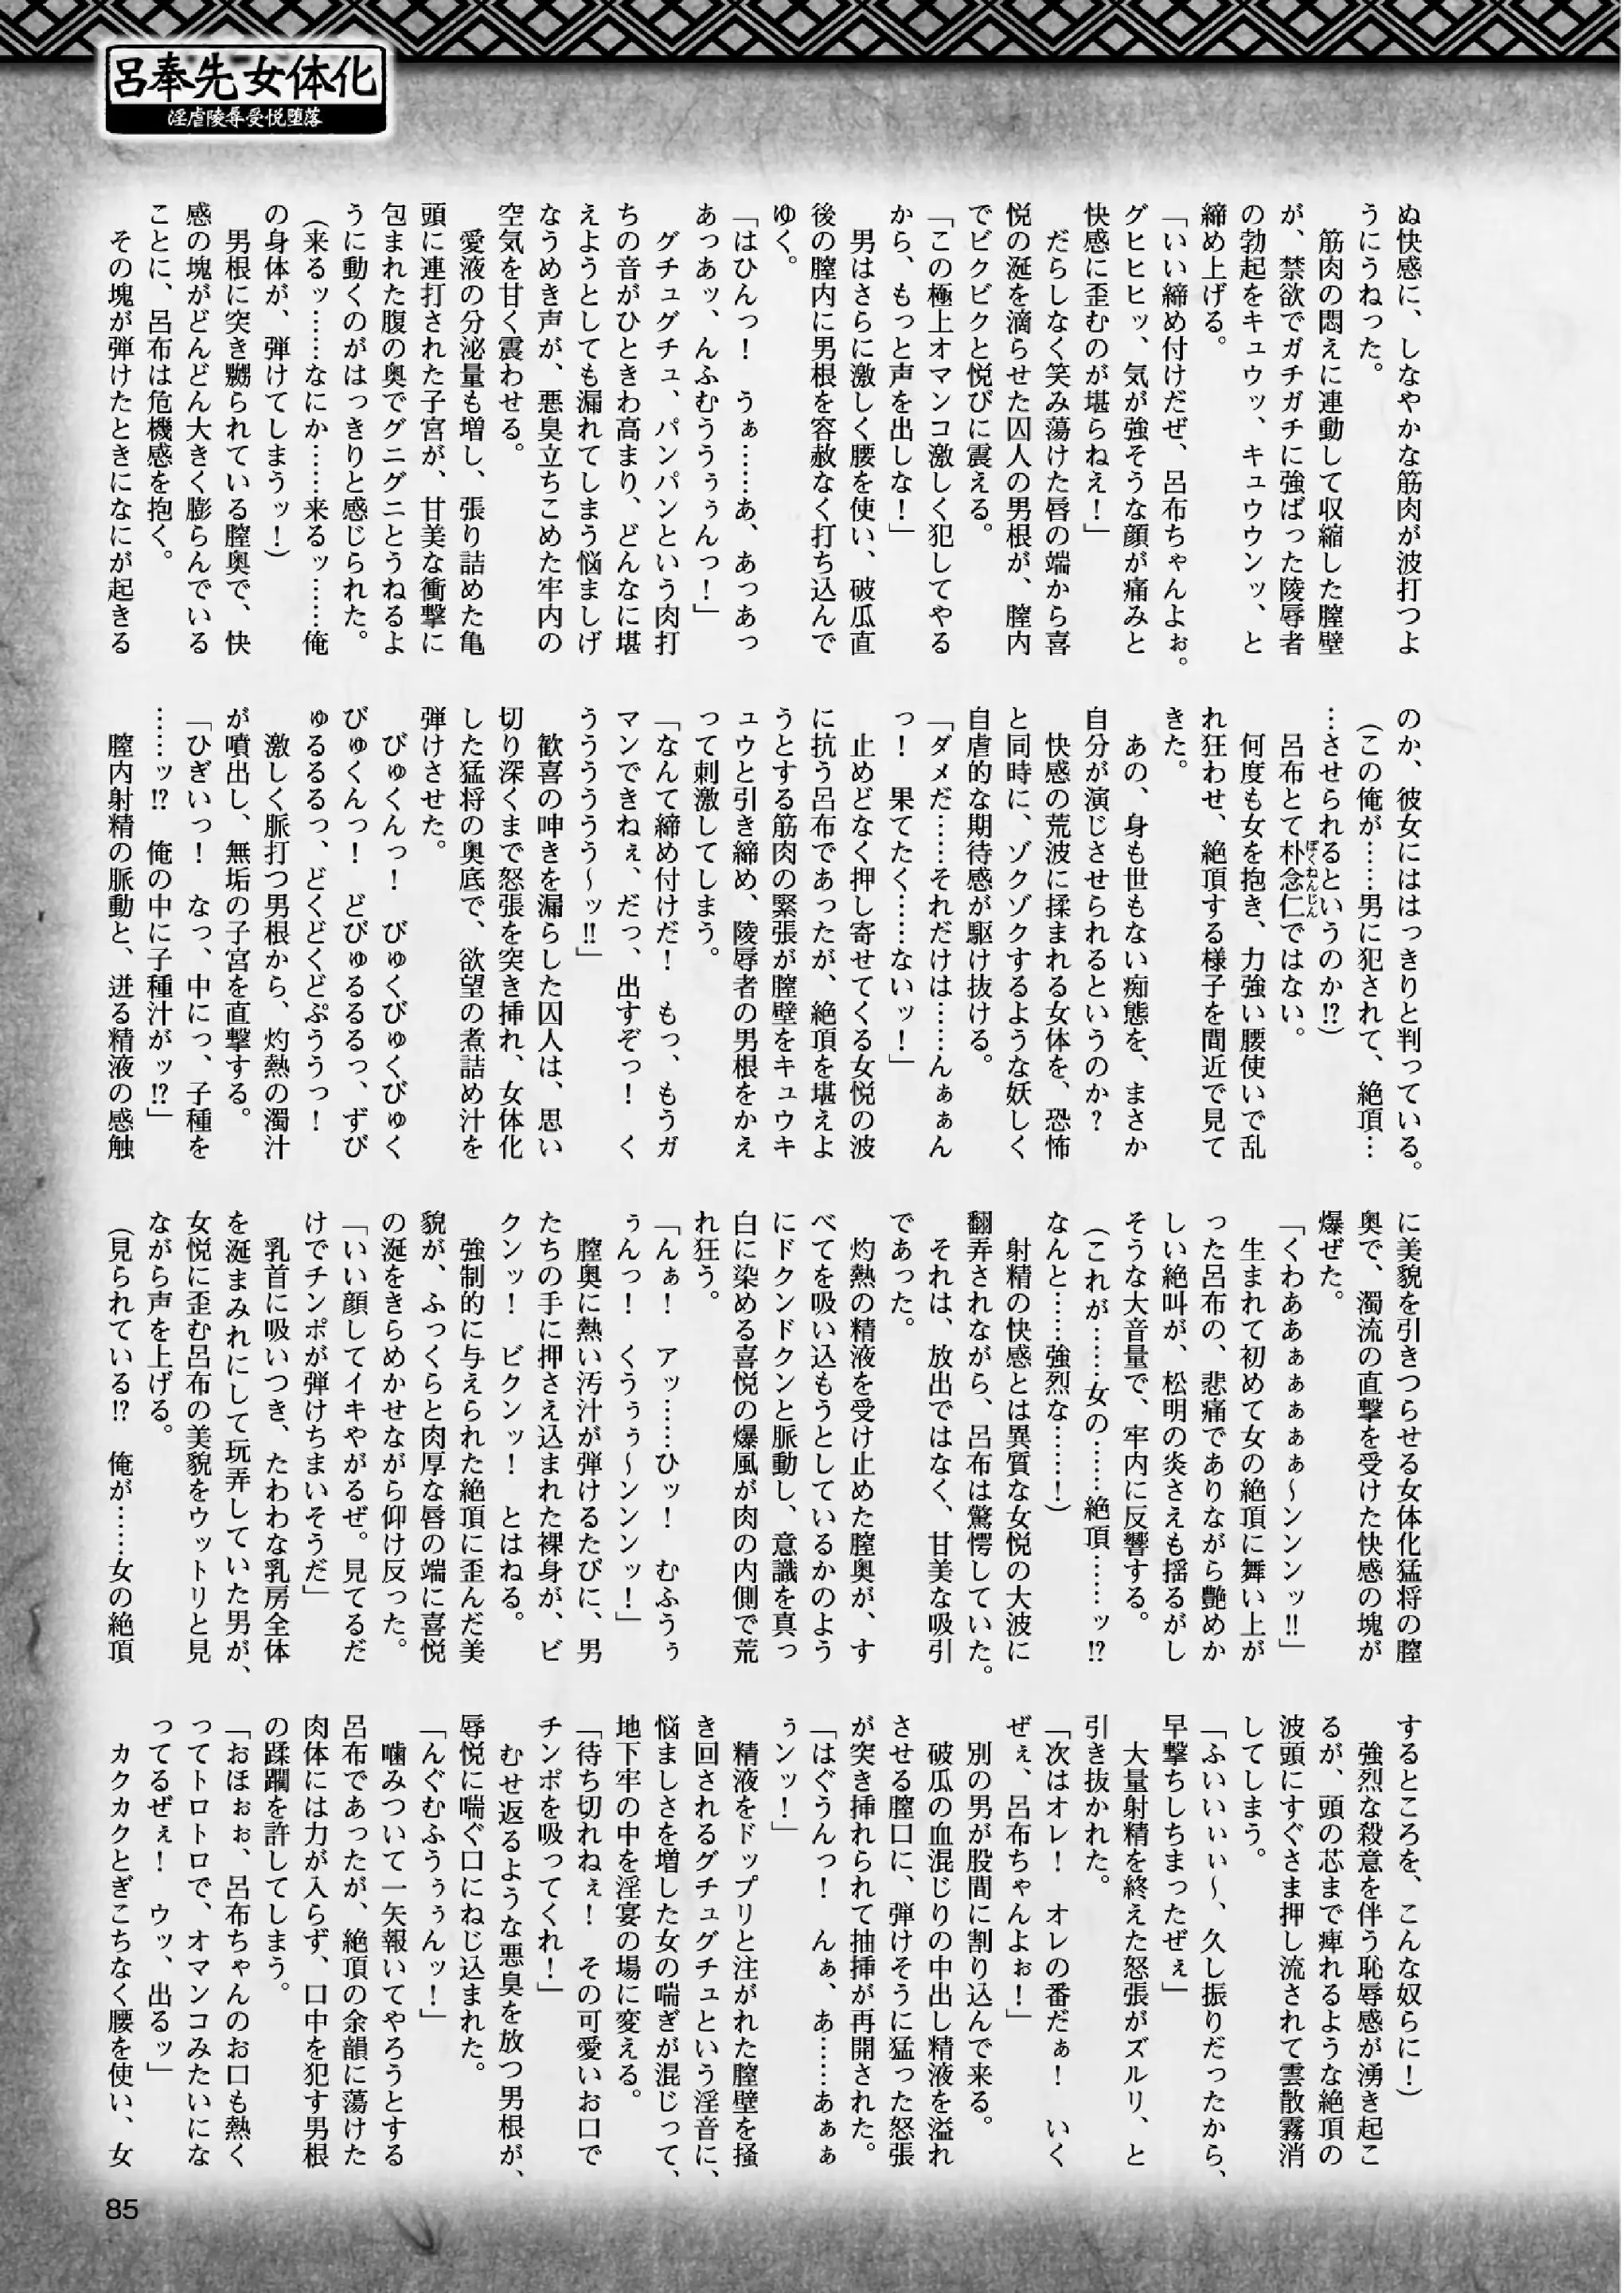 呂奉先女体化
淫虐陵辱受悦堕落
ぬ快感に、しなやかな筋肉が波打つよ
うにうねった。
　筋肉の悶えに連動して収縮した膣壁
が、禁欲でガチガチに強ばった陵辱者
の勃起をキュウッ、キュウウンッ、と
締め上げる。
「いい締め付けだぜ、呂布ちゃんよぉ。
グヒヒヒッ、気が強そうな顔が痛みと
快感に歪むのが堪らねえ！」
　だらしなく笑み蕩けた唇の端から喜
悦の涎を滴らせた囚人の男根が、膣内
でビクビクと悦びに震える。
「この極上オマンコ激しく犯してやる
から、もっと声を出しな！」
　男はさらに激しく腰を使い、破瓜直
後の膣内に男根を容赦なく打ち込んで
ゆく。
「はひんっ！　うぁ……あ、あっあっ
あっあッ、んふむううぅぅんっ！」
　グチュグチュ、パンパンという肉打
ちの音がひときわ高まり、どんなに堪
えようとしても漏れてしまう悩ましげ
なうめき声が、悪臭立ちこめた牢内の
空気を甘く震わせる。
　愛液の分泌量も増し、張り詰めた亀
頭に連打された子宮が、甘美な衝撃に
包まれた腹の奥でグニグニとうねるよ
うに動くのがはっきりと感じられた。
（来るッ……なにか……来るッ……俺
の身体が、弾けてしまうッ！）
　男根に突き嬲られている膣奥で、快
感の塊がどんどん大きく膨らんでいる
ことに、呂布は危機感を抱く。
　その塊が弾けたときになにが起きる
のか、彼女にははっきりと判っている。
（この俺が……男に犯されて、絶頂…
…させられるというのか⁉）
　呂布とて朴念仁ではない。
ぼくねんじん
　何度も女を抱き、力強い腰使いで乱
れ狂わせ、絶頂する様子を間近で見て
きた。
　あの、身も世もない痴態を、まさか
自分が演じさせられるというのか？
　快感の荒波に揉まれる女体を、恐怖
と同時に、ゾクゾクするような妖しく
自虐的な期待感が駆け抜ける。
「ダメだ……それだけは……んぁぁん
っ！　果てたく……ないッ！」
　止めどなく押し寄せてくる女悦の波
に抗う呂布であったが、絶頂を堪えよ
うとする筋肉の緊張が膣壁をキュウキ
ュウと引き締め、陵辱者の男根をかえ
って刺激してしまう。
「なんて締め付けだ！　もっ、もうガ
マンできねぇ、だっ、出すぞっ！　く
うううううう～ッ‼」
　歓喜の呻きを漏らした囚人は、思い
切り深くまで怒張を突き挿れ、女体化
した猛将の奥底で、欲望の煮詰め汁を
弾けさせた。
　びゅくんっ！　びゅくびゅくびゅく
びゅくんっ！　どびゅるるるっ、ずび
ゅるるるっ、どくどくどぷううっ！
　激しく脈打つ男根から、灼熱の濁汁
が噴出し、無垢の子宮を直撃する。
「ひぎいっ！　なっ、中にっ、子種を
……ッ⁉　俺の中に子種汁がッ⁉」
　膣内射精の脈動と、迸る精液の感触
に美貌を引きつらせる女体化猛将の膣
奥で、濁流の直撃を受けた快感の塊が
爆ぜた。
「くわああぁぁぁぁぁ～ンンンッ‼」
　生まれて初めて女の絶頂に舞い上が
った呂布の、悲痛でありながら艶めか
しい絶叫が、松明の炎さえも揺るがし
そうな大音量で、牢内に反響する。
（これが……女の……絶頂……ッ⁉
なんと……強烈な……！）
　射精の快感とは異質な女悦の大波に
翻弄されながら、呂布は驚愕していた。
　それは、放出ではなく、甘美な吸引
であった。
　灼熱の精液を受け止めた膣奥が、す
べてを吸い込もうとしているかのよう
にドクンドクンと脈動し、意識を真っ
白に染める喜悦の爆風が肉の内側で荒
れ狂う。
「んぁ！　アッ……ひッ！　むふうぅ
ぅんっ！　くうぅぅ～ンンンッ！」
　膣奥に熱い汚汁が弾けるたびに、男
たちの手に押さえ込まれた裸身が、ビ
クンッ！　ビクンッ！　とはねる。
　強制的に与えられた絶頂に歪んだ美
貌が、ふっくらと肉厚な唇の端に喜悦
の涎をきらめかせながら仰け反った。
「いい顔してイキやがるぜ。見てるだ
けでチンポが弾けちまいそうだ」
　乳首に吸いつき、たわわな乳房全体
を涎まみれにして玩弄していた男が、
女悦に歪む呂布の美貌をウットリと見
ながら声を上げる。
（見られている⁉　俺が……女の絶頂
するところを、こんな奴らに！）
　強烈な殺意を伴う恥辱感が湧き起こ
るが、頭の芯まで痺れるような絶頂の
波頭にすぐさま押し流されて雲散霧消
してしまう。
「ふいいぃぃ～、久し振りだったから、
早撃ちしちまったぜぇ」
　大量射精を終えた怒張がズルリ、と
引き抜かれた。
「次はオレ！　オレの番だぁ！　いく
ぜぇ、呂布ちゃんよぉ！」
　別の男が股間に割り込んで来る。
　破瓜の血混じりの中出し精液を溢れ
させる膣口に、弾けそうに猛った怒張
が突き挿れられて抽挿が再開された。
「はぐうんっ！　んぁ、あ……あぁぁ
ぅンッ！」
　精液をドップリと注がれた膣壁を掻
き回されるグチュグチュという淫音に、
悩ましさを増した女の喘ぎが混じって、
地下牢の中を淫宴の場に変える。
「待ち切れねぇ！　その可愛いお口で
チンポを吸ってくれ！」
　むせ返るような悪臭を放つ男根が、
辱悦に喘ぐ口にねじ込まれた。
「んぐむふうぅぅんッ！」
　噛みついて一矢報いてやろうとする
呂布であったが、絶頂の余韻に蕩けた
肉体には力が入らず、口中を犯す男根
の蹂躙を許してしまう。
「おほぉぉ、呂布ちゃんのお口も熱く
ってトロトロで、オマンコみたいにな
ってるぜぇ！　ウッ、出るッ」
　カクカクとぎこちなく腰を使い、女
85